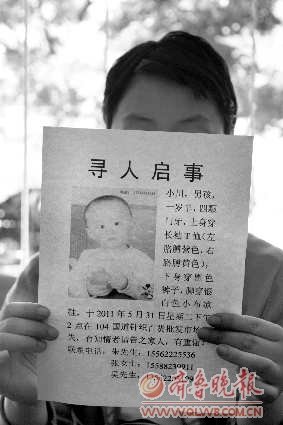 寻人启事
小川，男孩，
一岁半，四颗
门牙，上身穿
长袖T恤（左
胳膊紫色，右
胳膊黄色），
下身穿黑色
裤子，脚穿银
白色小布凉
鞋，于2011年5月31日星期二下午
2点在104国道针织百货批发市场
失，有知情者请告之家人，有重谢！
联系电话：朱先生：15562225536
张女士：15588239911
吴先生：
齐鲁晚报
WWW.QLWB.COM.CN